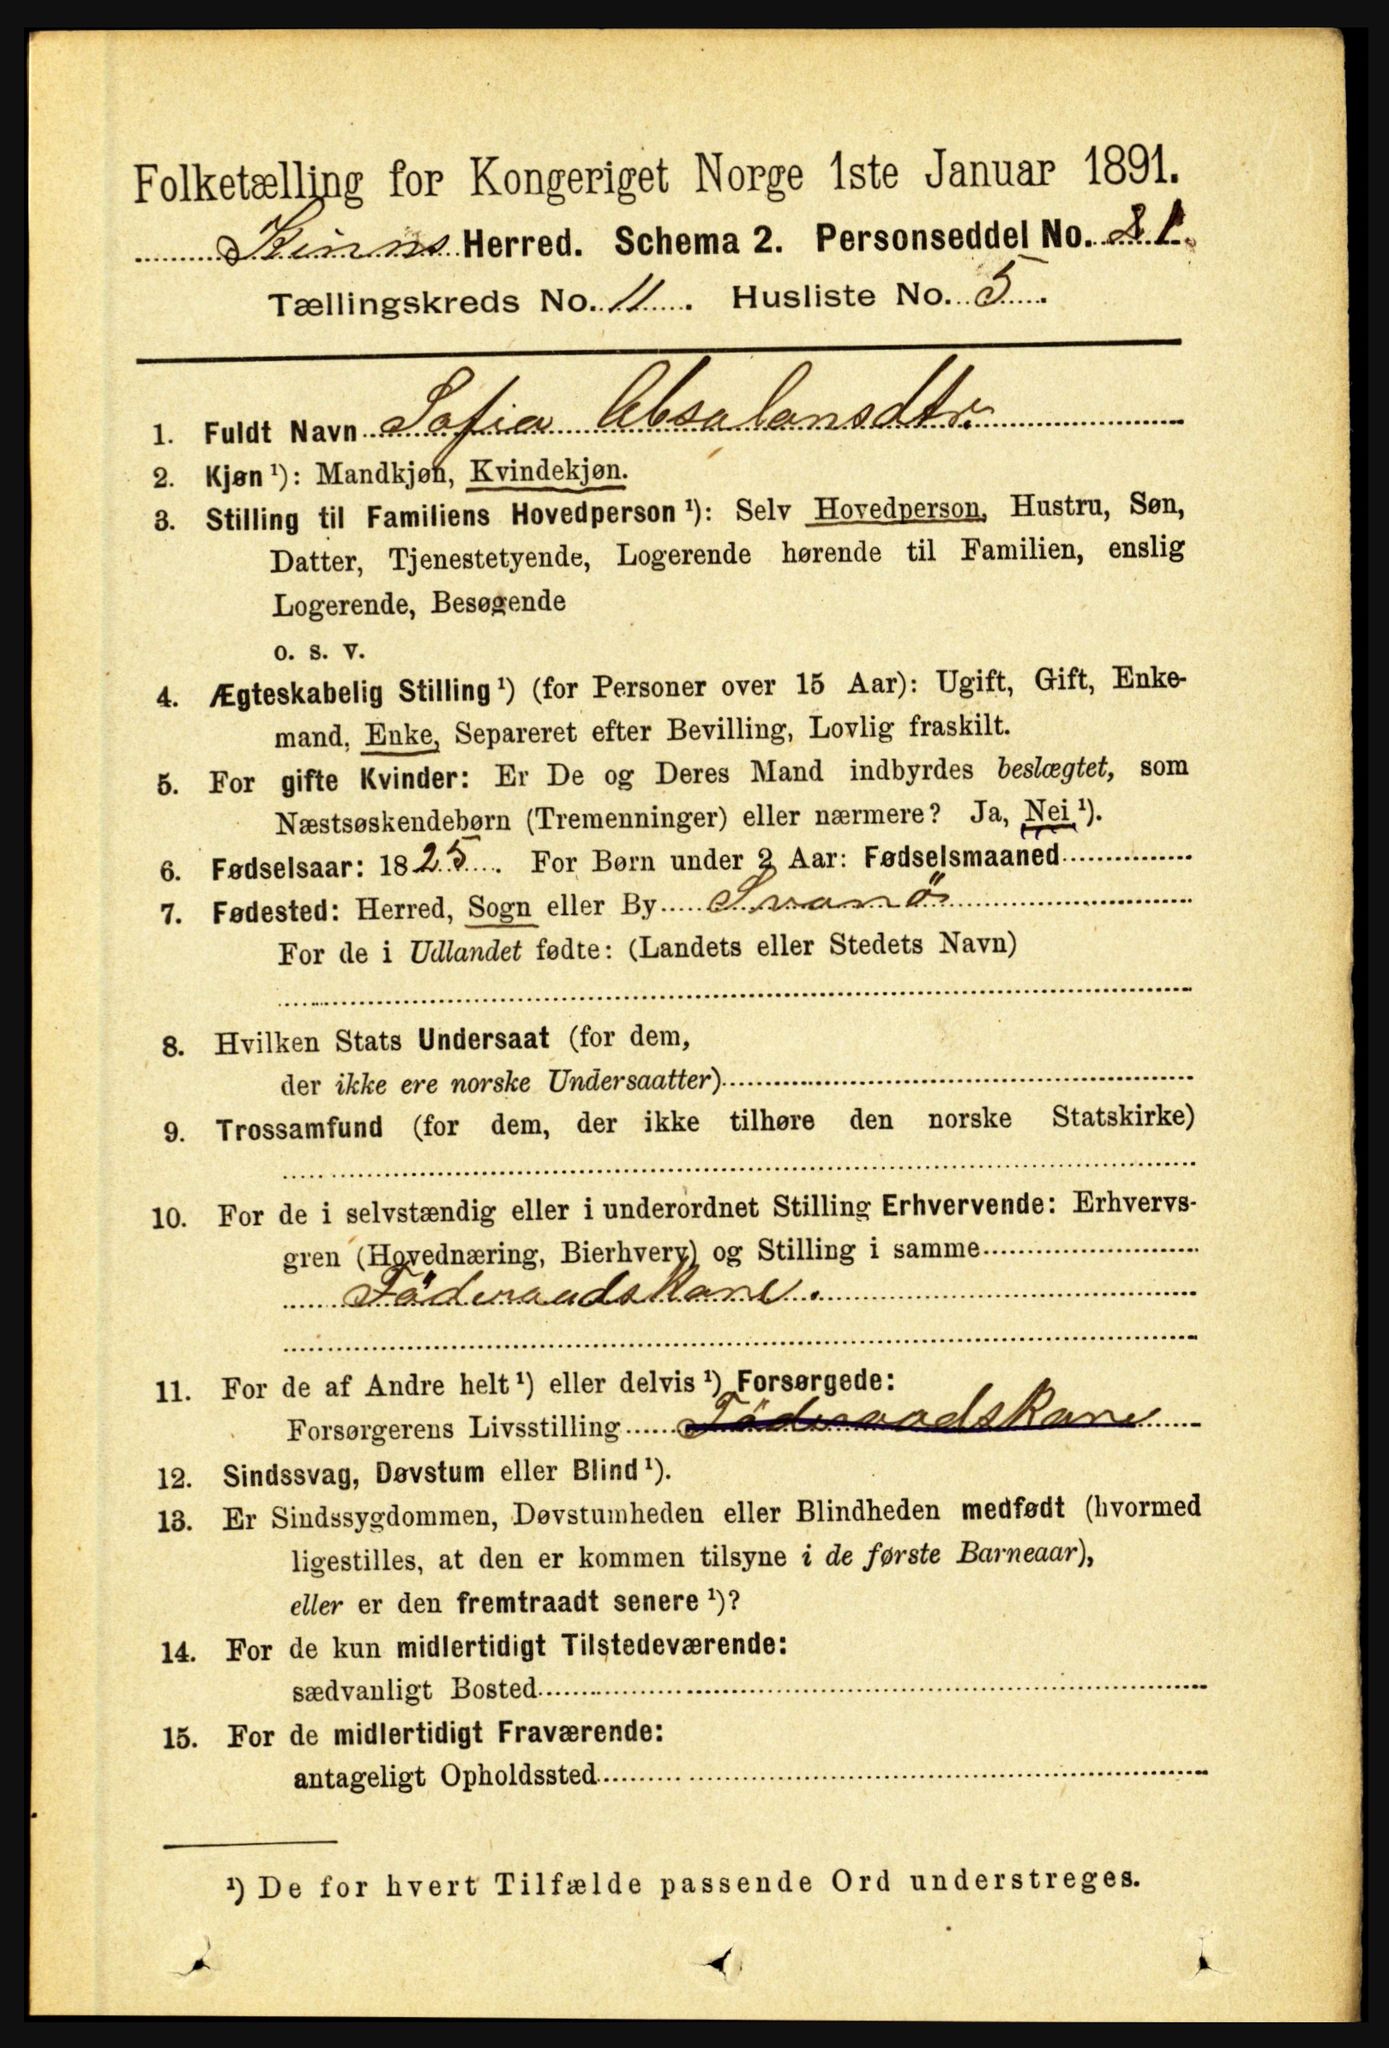 Folketælling for Kongeriget Norge 1ste Januar 1891.
Kinns Herred. Schema 2. Personseddel No. 21.
Tællingskreds No. 11. Husliste No. 5.
1. Fuldt Navn Sofia Absalonsdtr.
2. Kjøn ¹): Mandkjøn, Kvindekjøn.
3. Stilling til Familiens Hovedperson ¹): Selv Hovedperson, Hustru, Søn,
Datter, Tjenestetyende, Logerende hørende til Familien, enslig
Logerende, Besøgende
o. s. v.
4. Ægteskabelig Stilling ¹) (for Personer over 15 Aar): Ugift, Gift, Enke-
mand, Enke, Separeret efter Bevilling, Lovlig fraskilt.
5. For gifte Kvinder: Er De og Deres Mand indbyrdes beslægtet, som
Næstsøskendebørn (Tremenninger) eller nærmere? Ja, Nei ¹).
6. Fødselsaar: 1825. For Børn under 2 Aar: Fødselsmaaned
7. Fødested: Herred, Sogn eller By Svanö
For de i Udlandet fødte: (Landets eller Stedets Navn)
8. Hvilken Stats Undersaat (for dem,
der ikke ere norske Undersaatter)
9. Trossamfund (for dem, der ikke tilhøre den norske Statskirke)
10. For de i selvstændig eller i underordnet Stilling Erhvervende: Erhvervs-
gren (Hovednæring, Bierhverv) og Stilling i samme
Föderaadskone.
11. For de af Andre helt ¹) eller delvis ¹) Forsørgede:
Forsørgerens Livsstilling Föderaadskone
12. Sindssvag, Døvstum eller Blind ¹).
13. Er Sindssygdommen, Døvstumheden eller Blindheden medfødt (hvormed
ligestilles, at den er kommen tilsyne i de første Barneaar),
eller er den fremtraadt senere ¹)?
14. For de kun midlertidigt Tilstedeværende:
sædvanligt Bosted
15. For de midlertidigt Fraværende:
antageligt Opholdssted
¹) De for hvert Tilfælde passende Ord understreges.